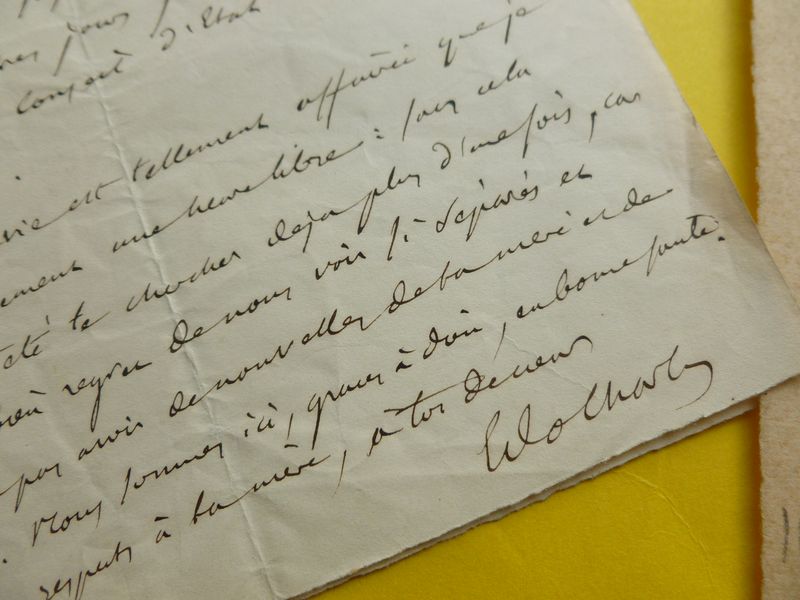 jours
conseil d'Etat
vie est tellement affairée que je
ment une heure libre : sans cela
été te chercher déjà plus d'une fois, car
regret de nous voir si séparés et
pas avoir de nouvelles de ta mère et de
Nous sommes ici, graces à dieu, en bonne santé.
respects à ta mère, à toi de cœur